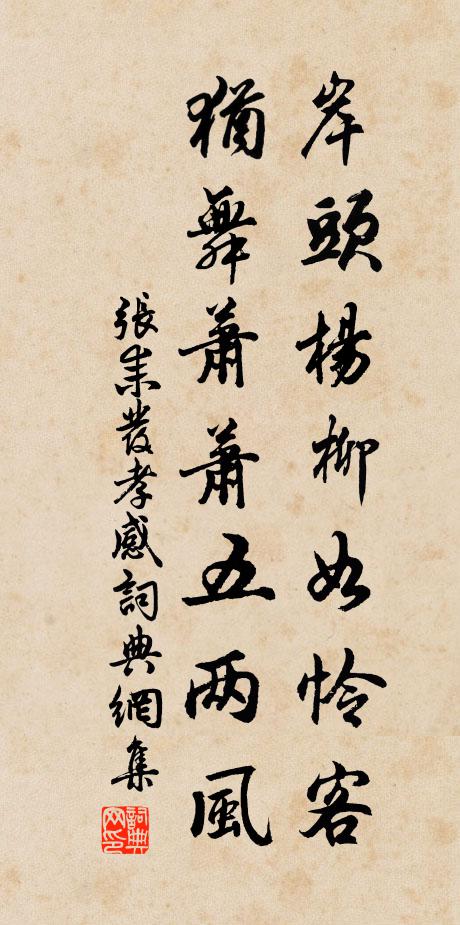 岸頭楊柳如怜客
猶舞蕭蕭五两風
張耒發孝感詞典網集
詞典網印